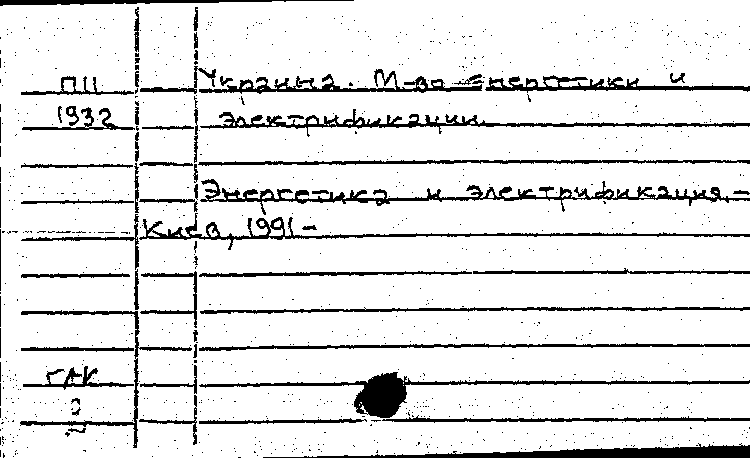 П11 Украина. М-во энергетики и
1932 электрификации.
Энергетика и электрификация.–
Киев, 1991–
ГАК